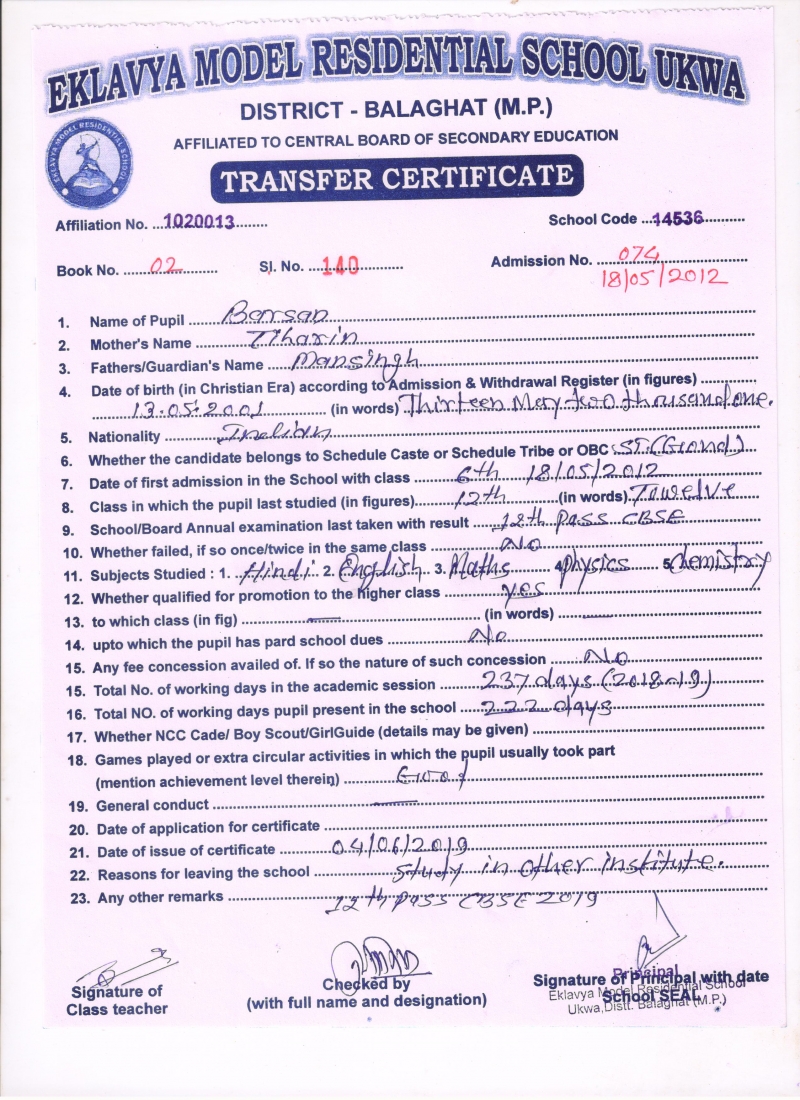 EKLAVYA MODEL RESIDENTIAL SCHOOL UKWA
DISTRICT - BALAGHAT (M.P.)
AFFILIATED TO CENTRAL BOARD OF SECONDARY EDUCATION
EKLAVYA MODEL RESIDENTIAL SCHOOL
TRANSFER CERTIFICATE
Affiliation No. ...1020013......... School Code ...14536...........
Book No. .... 02 ........... Sl. No. ....140........... Admission No. ....074...........
18/05/2012
1. Name of Pupil ....Barsan....
2. Mother's Name ....Tiharin....
3. Fathers/Guardian's Name ....Mansingh....
4. Date of birth (in Christian Era) according to Admission & Withdrawal Register (in figures) ............
....13.05.2001.... (in words) Thirteen Mery two thousand one.
5. Nationality ....Indian....
6. Whether the candidate belongs to Schedule Caste or Schedule Tribe or OBC ST(Gond)
7. Date of first admission in the School with class ....6th 18/05/2012....
8. Class in which the pupil last studied (in figures)....12th....(in words) Towelve
9. School/Board Annual examination last taken with result ....12th Pass CBSE....
10. Whether failed, if so once/twice in the same class ....No....
11. Subjects Studied : 1. Hindi 2. English 3. Maths 4 physics 5 chemistry
12. Whether qualified for promotion to the higher class ....yes....
13. to which class (in fig) ....—.... (in words) ....—....
14. upto which the pupil has pard school dues ....No....
15. Any fee concession availed of. If so the nature of such concession ....No....
15. Total No. of working days in the academic session ....237 days (2018-19)....
16. Total NO. of working days pupil present in the school ....222 days....
17. Whether NCC Cade/ Boy Scout/GirlGuide (details may be given) ............
18. Games played or extra circular activities in which the pupil usually took part
(mention achievement level therein) ....Good....
19. General conduct ....—....
20. Date of application for certificate ............
21. Date of issue of certificate ....04/06/2019....
22. Reasons for leaving the school ....Study in other institute.
23. Any other remarks ....12th pass CBSE 2019
Signature of
Class teacher
Checked by
(with full name and designation)
Signature of Principal with date
School SEAL
Principal
Eklavya Model Residential School
Ukwa, Distt. Balaghat (M.P.)